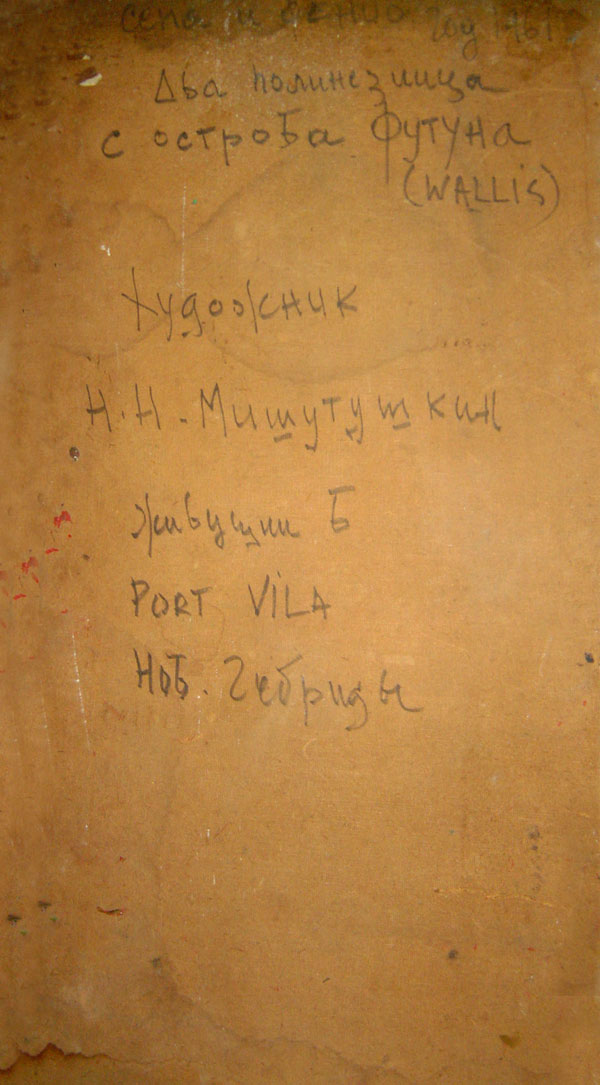 сепа и
год 1961
Два полинезийца
с острова Футуна
(WALLIS)
Художник
Н.Н. Мишутушкин
Живущий в
PORT VILA
Нов. Гебриды